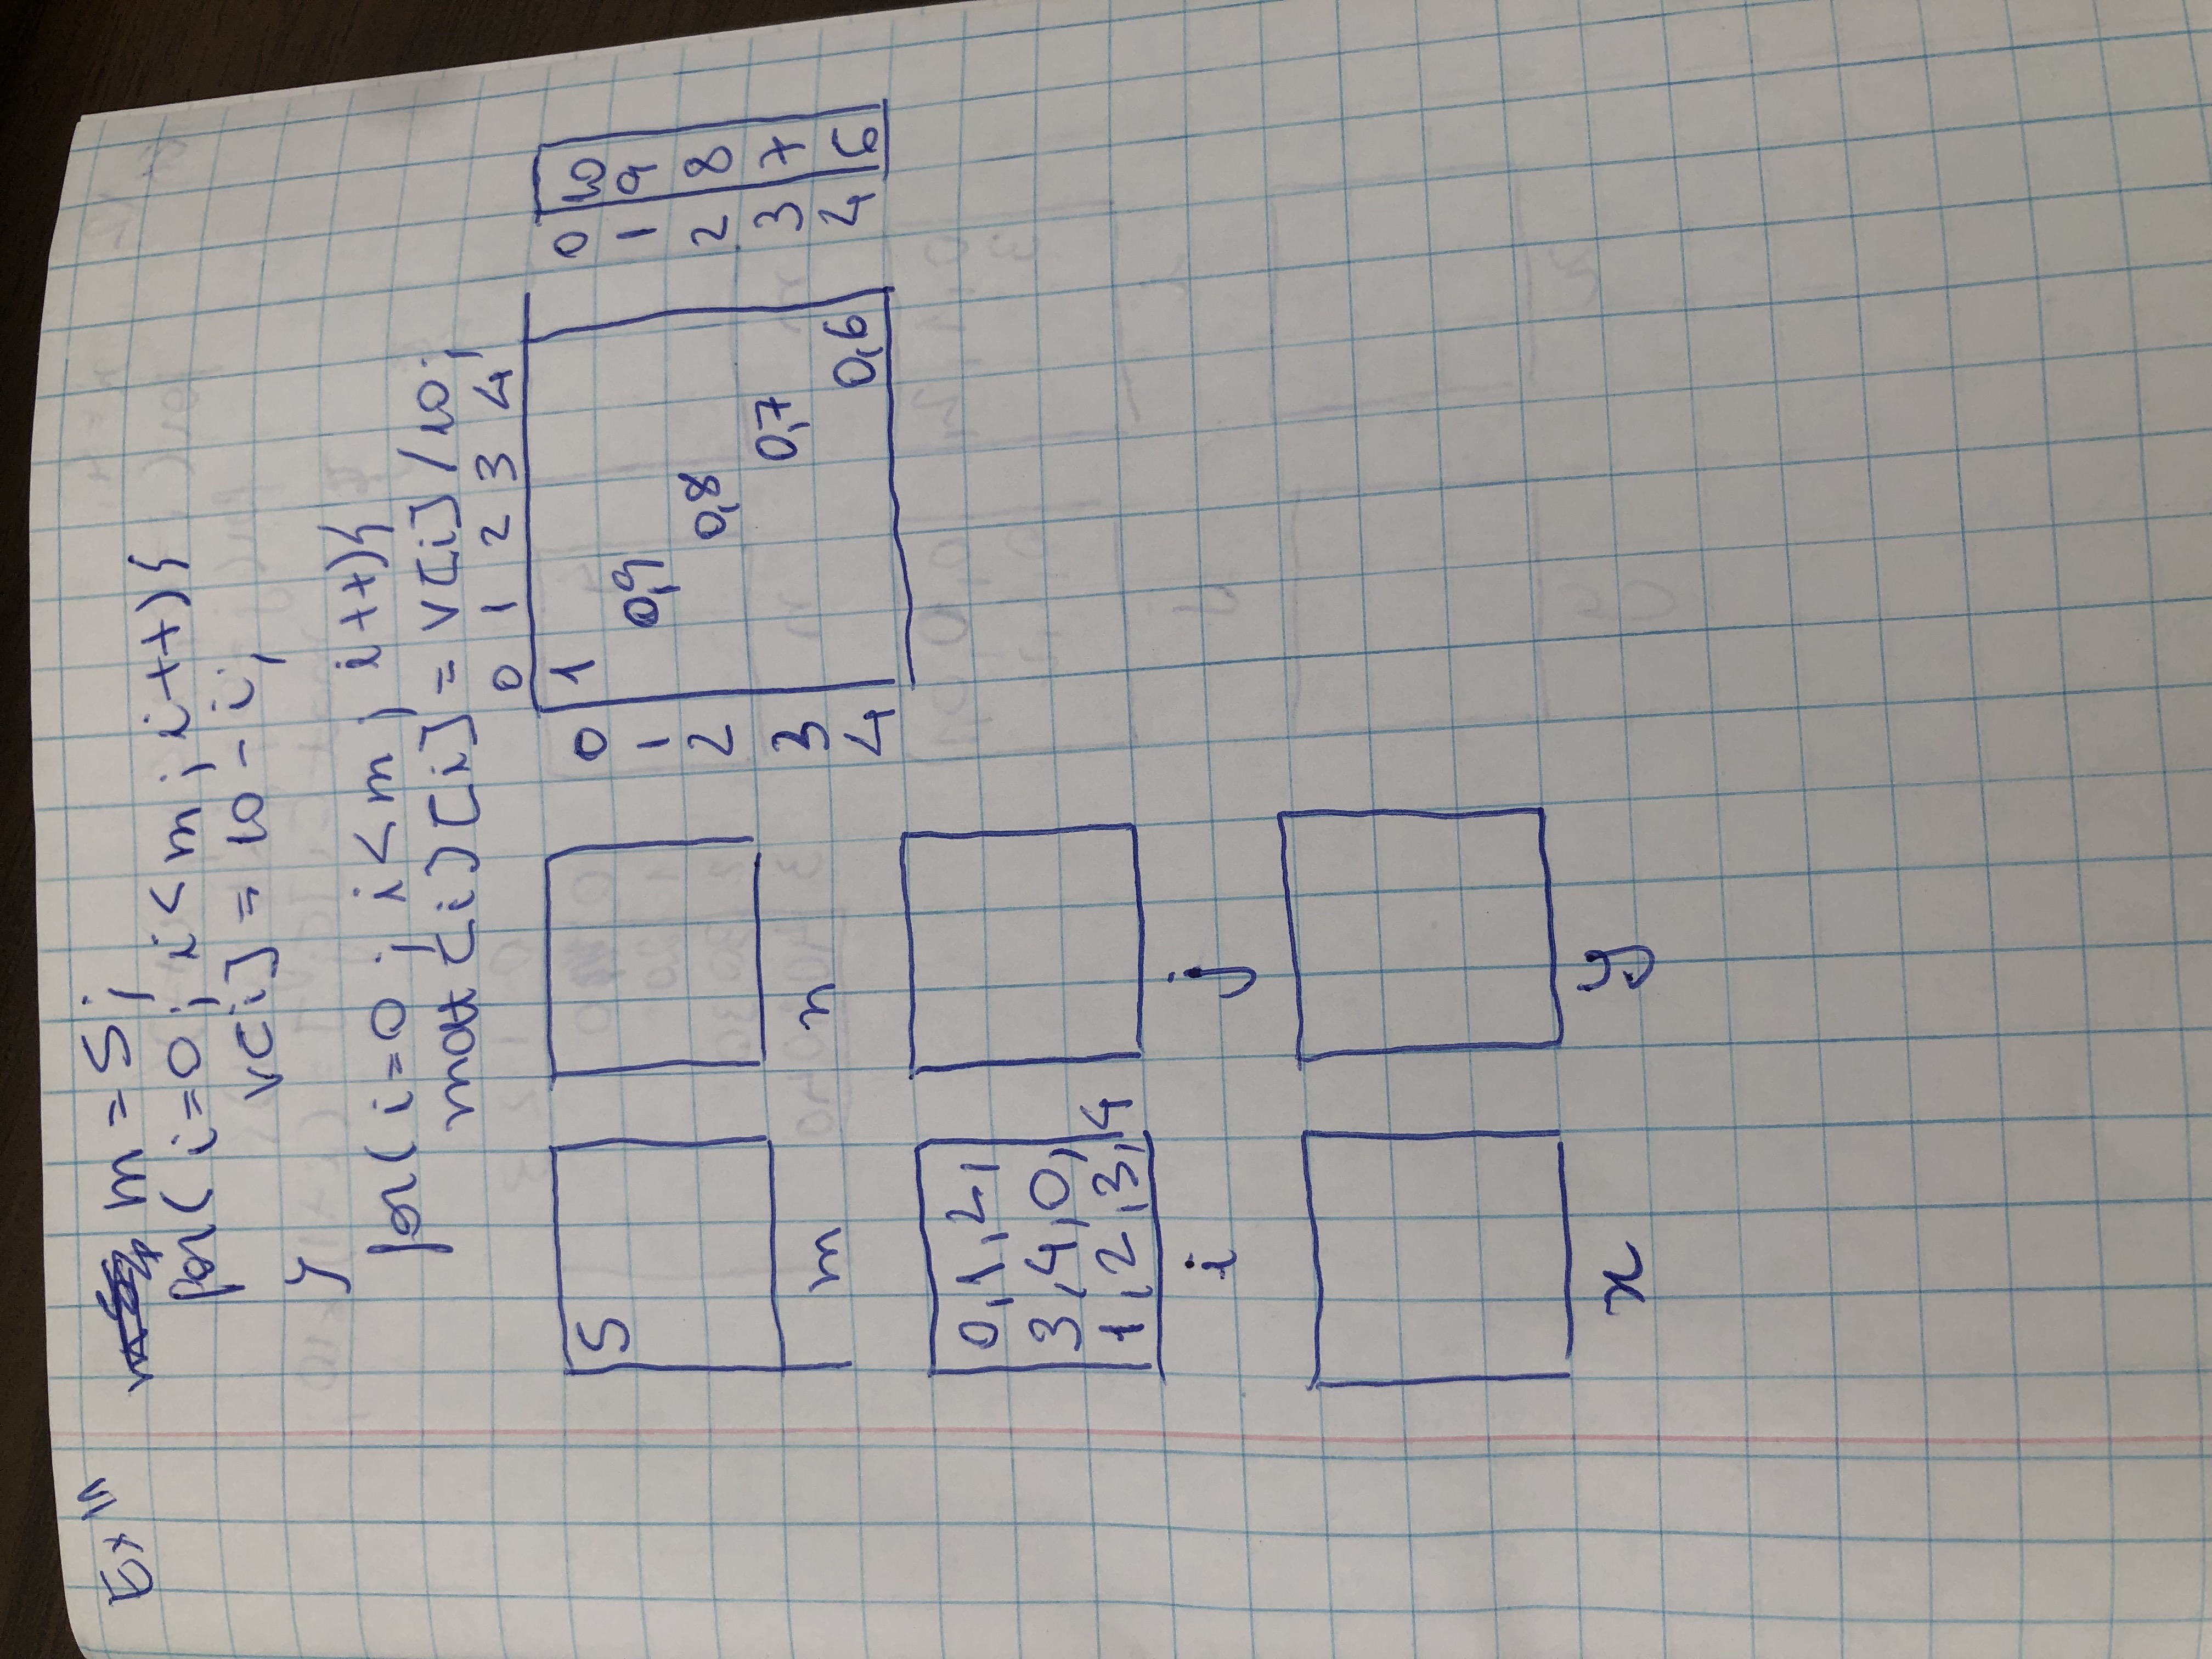 Ex 11
m = 5;
for( i=0; i<m; i++){
v[i] = 10 - i;
}
for( i=0; i<m; i++){
mat[i][i] = v[i]/10;
0 1 2 3 4
5
0 1
1 0,9
2 0,8
3 0,7
4 0,6
0 10
1 9
2 8
3 7
4 6
m n
0,1,2,
3,4,0,
1,2,3,4
i j
x y